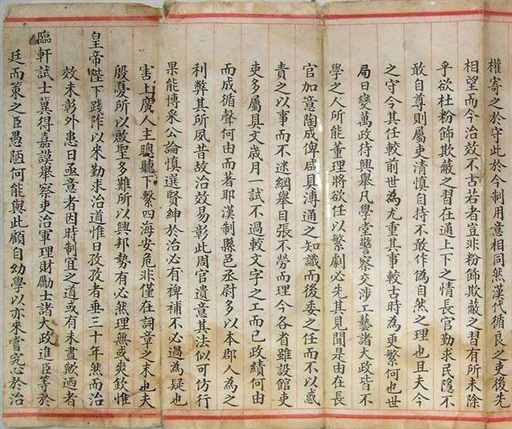 權寄之於守此於今制用意相同然漢代循良之吏後先
相望而今治效不古若者豈非粉飾欺蔽之習有所未除
乎欲杜粉飾欺蔽之習在通上下之情長官勤求民隱不
敢自尊則屬吏清慎自持不敢作偽自然之理也且夫今
之守令其任較前世為尤重其事較古時為更繁何也世
局日變萬政待興舉凡學堂警察交涉工藝諸大政皆不
學之人所能董理將欲任以繁劇必先其見聞是由在長
官加意陶成俾屬員溥通之知識而後委之任而不以為
責之以事而不迷綱舉目張不勞而理今各省雖設館吏
吏多屬具文歲月一試不過較文字之工而已政績何由
而成循聲何由而著耶漢制縣邑丞尉多以本郡人為之
利弊其所夙昔故治效易彰此周官遺意其法似可仿行
果能博采公論慎選賢紳於治必有裨補不必過為疑也
害上慶人主聰聽下繫四海安危非僅在詞章之末也夫
殷憂所以啟聖多難所以興邦勢有必然理無或爽欽惟
皇帝陛下踐阼以來勤求治道惟日孜孜者垂三十年然而治
效未彰外患日亟意者因時制宜之道或有未盡然者
臨軒試士冀得嘉謨舉察吏治軍理財勵士諸大政進臣等於
廷而策之臣愚陋何能與此顧自幼學以亦來嘗究心於治